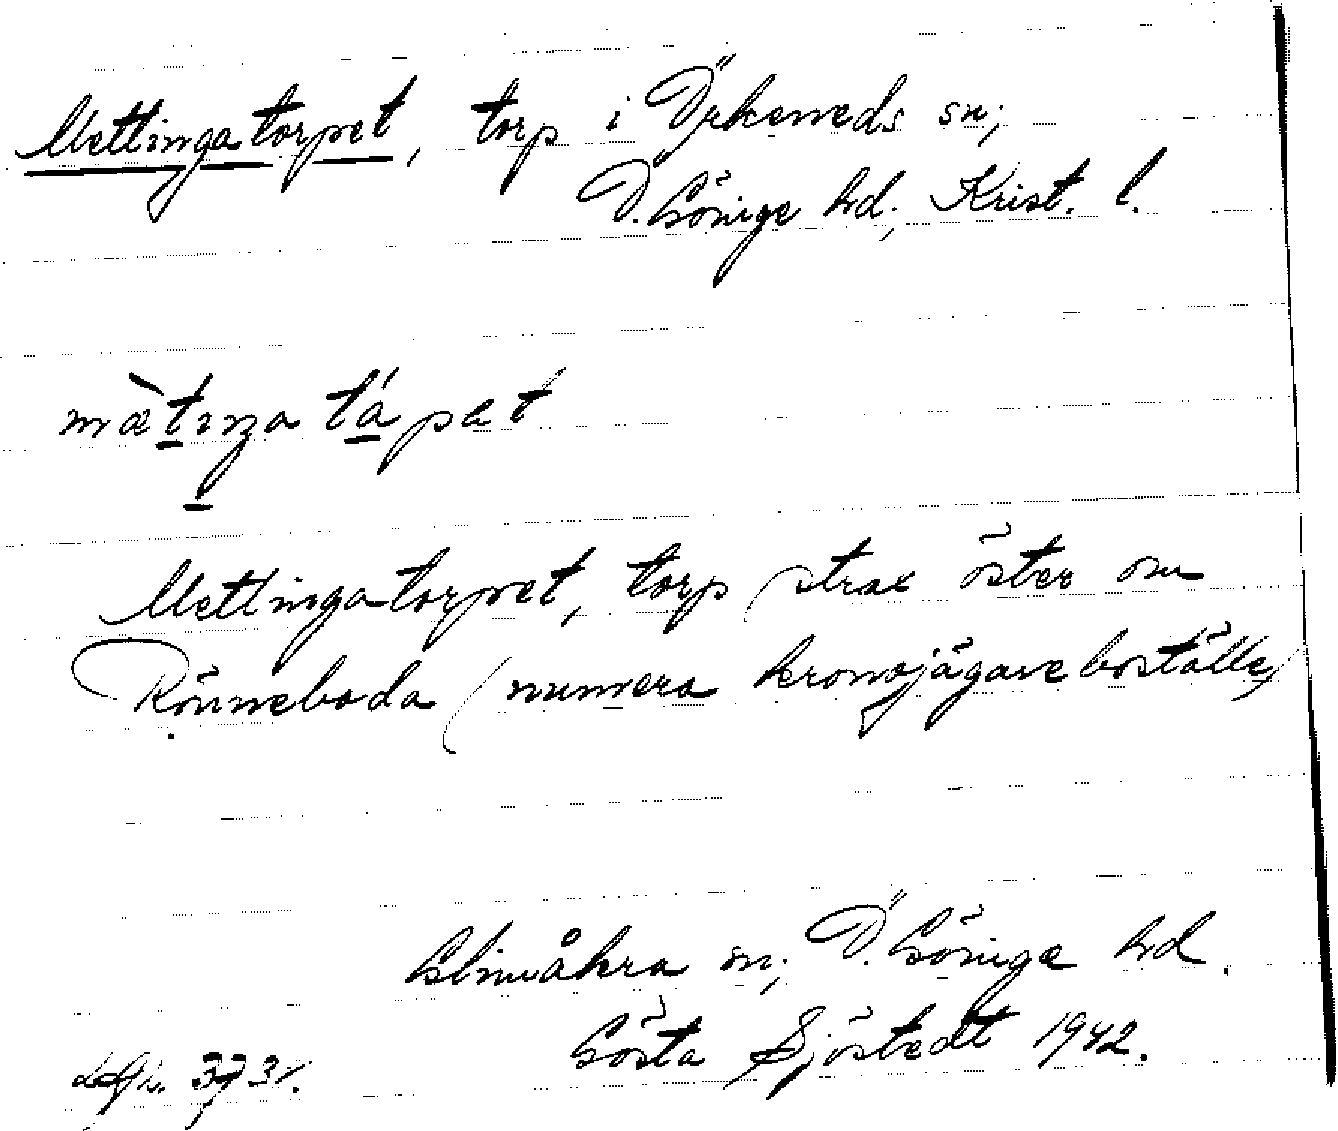 Mettingatorpet, torp i Örkeneds sn;
Ö. Göinge hd; Krist. l.
mæ̀tiŋa tápət
Mettingatorpet, torp strax öster om
Rönneboda (numera kronojägareboställe)
Glimåkra sn; Ö. Göinge hd.
Gösta Sjöstedt 1942.